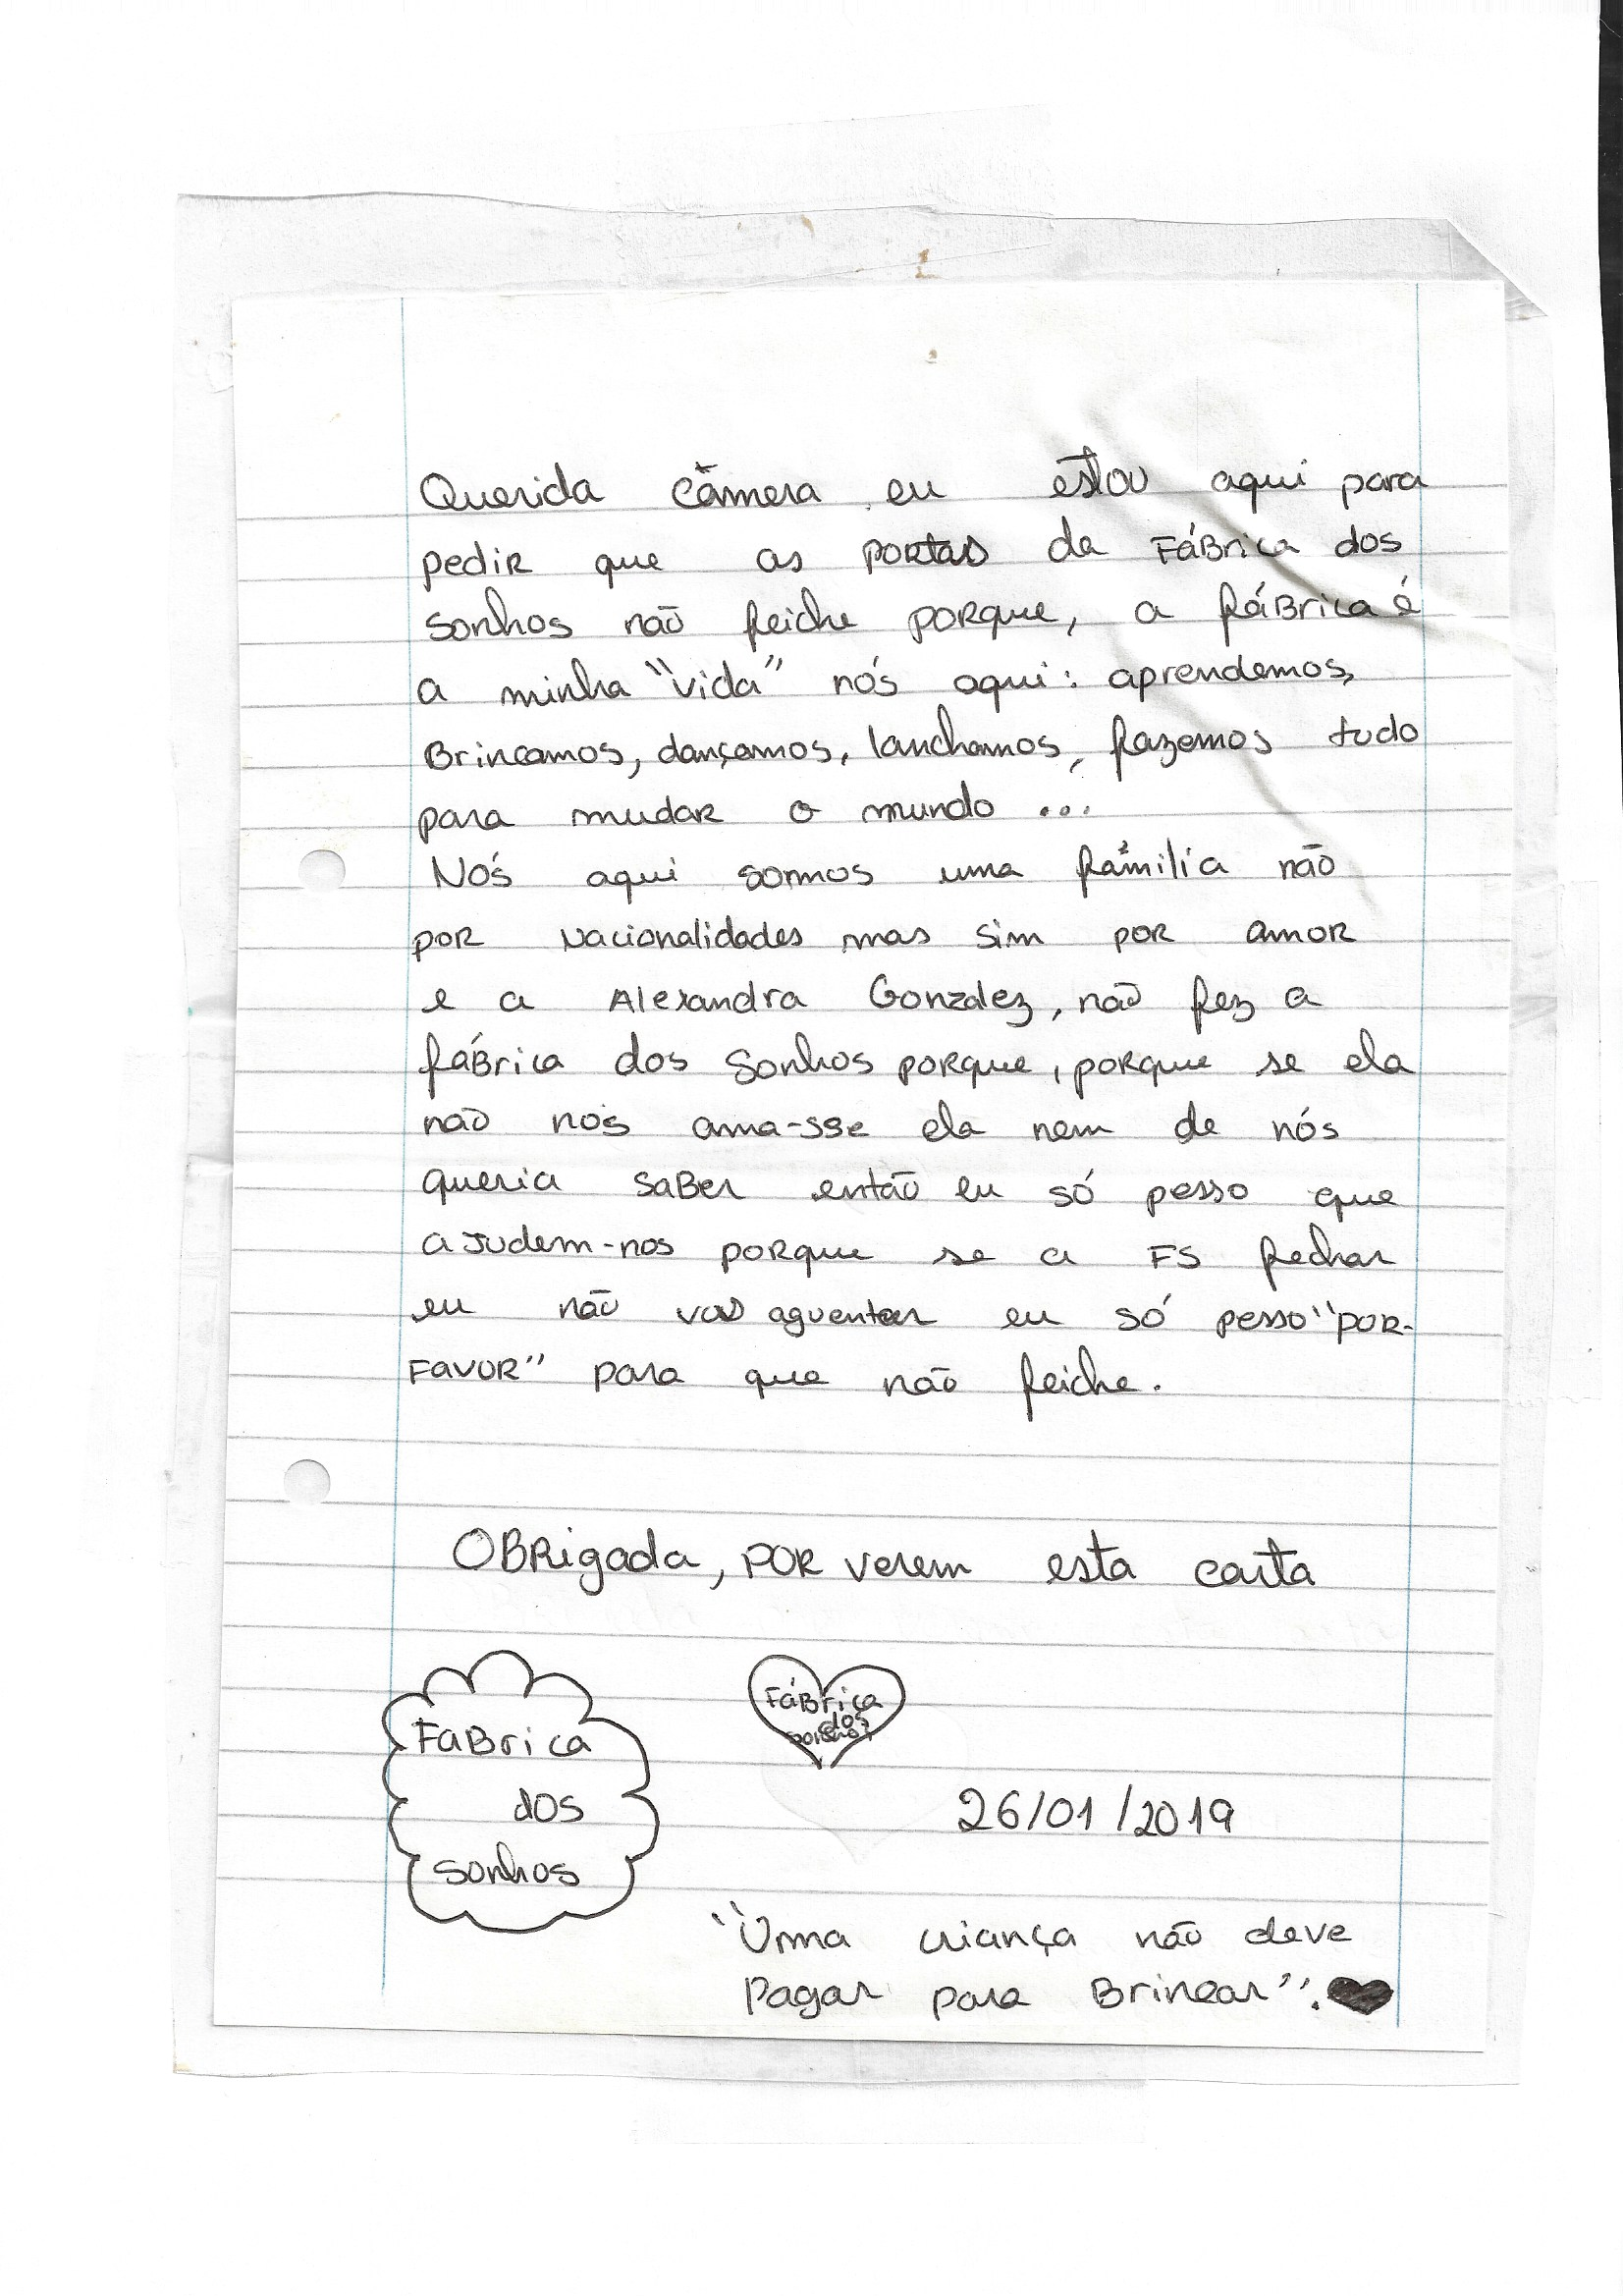 Querida Câmera eu estou aqui para
pedir que as portas da Fábrica dos
sonhos não feiche porque, a fábrica é
a minha "vida" nós aqui: aprendemos,
Brincamos, dançamos, lanchamos, fazemos tudo
para mudar o mundo ...
Nós aqui somos uma família não
por nacionalidades mas sim por amor
e a Alexandra Gonzalez, não fez a
fábrica dos sonhos porque, porque se ela
não nós ama-sse ela nem de nós
queria saber então eu só pesso que
ajudem-nos porque se a FS fechar
eu não vou aguentar eu só pesso "por-
favor" para que não feiche.
Obrigada, por verem esta carta
Fabrica
dos
sonhos
Fábrica
dos
sonhos
26/01/2019
"Uma criança não deve
Pagar para Brincar".